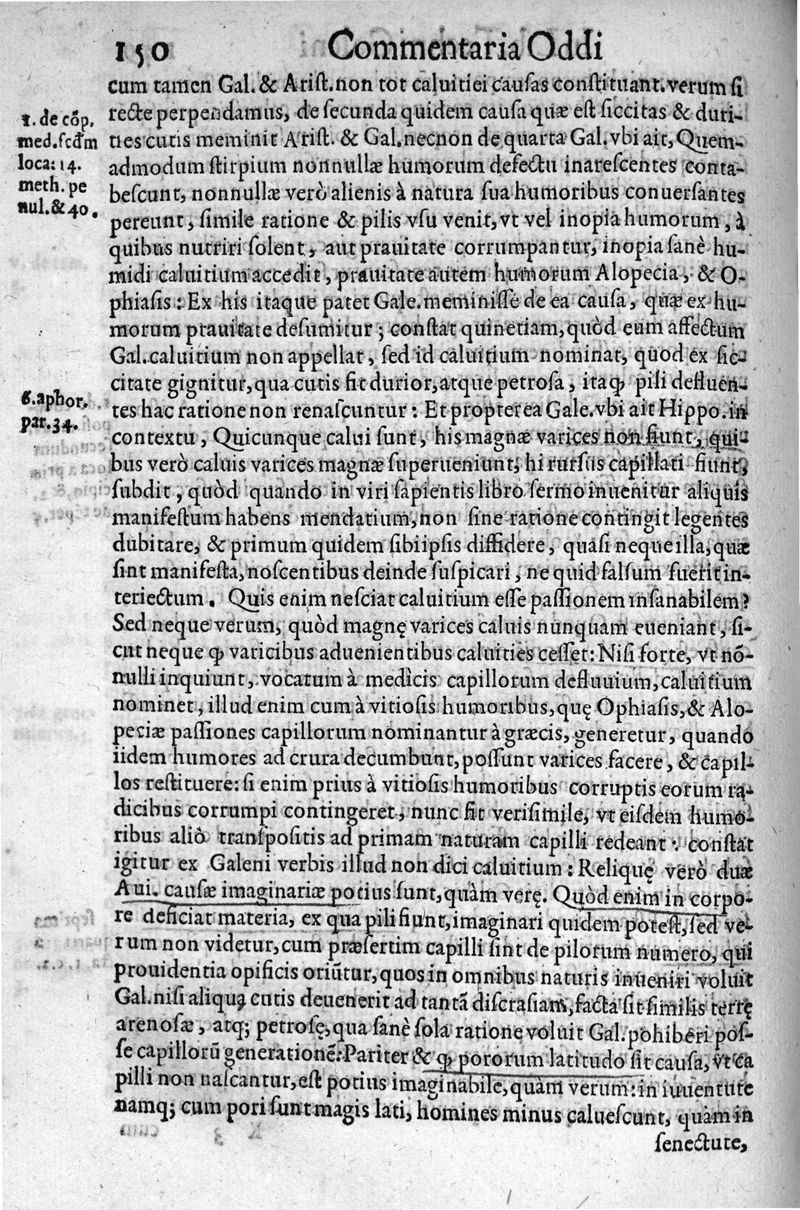 150 Commentaria Oddi
cum tamen Gal. & Arist. non tot caluitiei causas constituant. verum si
recte perpendamus, de secunda quidem causa quæ est siccitas & duri-
ties cutis meminit Arist. & Gal. necnon de quarta Gal. vbi ait, Quem-
admodum stirpium nonnullæ humorum defectu inarescentes conta-
bescunt, nonnullæ verò alienis à natura sua humoribus conuersantes
pereunt, simile ratione & pilis vsu venit, vt vel inopia humorum, à
quibus nutriri solent, aut prauitate corrumpantur, inopia sanè hu-
midi caluitium accedit, prauitate autem humorum Alopecia, & O-
phiasis: Ex his itaque patet Gale. meminisse de ea causa, quæ ex hu-
morum prauitate desumitur; constat quinetiam, quòd eum affectum
Gal. caluitium non appellat, sed id caluitium nominat, quod ex sic-
citate gignitur, qua cutis fit durior, atque petrosa, itaq; pili defluen-
tes hac ratione non renascuntur: Et propterea Gale. vbi ait Hippo. in
contextu, Quicunque calui sunt, his magnæ varices non fiunt, qui-
bus verò caluis varices magnæ superueniunt, hi rursus capillati fiunt,
subdit, quòd quando in viri sapientis libro sermo inuenitur aliquis
manifestum habens mendatium, non sine ratione contingit legentes
dubitare, & primum quidem sibiipsis diffidere, quasi neque illa, quæ
sint manifesta, noscentibus deinde suspicari, ne quid falsum fuerit in-
teriectum. Quis enim nesciat caluitium esse passionem insanabilem?
Sed neque verum, quòd magnę varices caluis nunquam eueniant, si-
cut neque ꝙ varicibus aduenientibus caluities cesset: Nisi forte, vt nō-
nulli inquiunt, vocatum à medicis capillorum defluuium, caluitium
nominet, illud enim cum à vitiosis humoribus, quę Ophiasis, & Alo-
peciæ passiones capillorum nominantur à græcis, generetur, quando
iidem humores ad crura decumbunt, possunt varices facere, & capil-
los restituere: si enim prius à vitiosis humoribus corruptis eorum ra-
dicibus corrumpi contingeret, nunc sit verisimile, vt eisdem humo-
ribus aliò transpositis ad primam naturam capilli redeant: constat
igitur ex Galeni verbis illud non dici caluitium: Reliquę verò duæ
Aui. causæ imaginariæ potius sunt, quàm verę. Quòd enim in corpo-
re deficiat materia, ex qua pili fiunt, imaginari quidem potest, sed ve-
rum non videtur, cum præsertim capilli sint de pilorum numero, qui
prouidentia opificis oriūtur, quos in omnibus naturis inueniri voluit
Gal. nisi aliqua cutis deuenerit ad tantā discrasiam, facta sit similis terrę
arenosæ, atq; petrosę, qua sanè sola ratione voluit Gal. pohiberi pos-
se capillorū generationē: Pariter & ꝙ pororum latitudo sit causa, vt ea
pilli non nascantur, est potius imaginabile, quàm verum: in iuuentute
namq; cum pori sunt magis lati, homines minus caluescunt, quàm in
senectute,
1. de cōp.
med. scđm
loca: 14.
meth. pe
nul. & 40.
6. aphor.
par. 34.